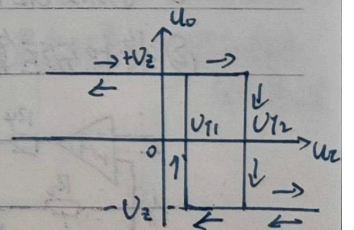 u₀
+Uz
U_T1 U_T2
0 u_i
-Uz